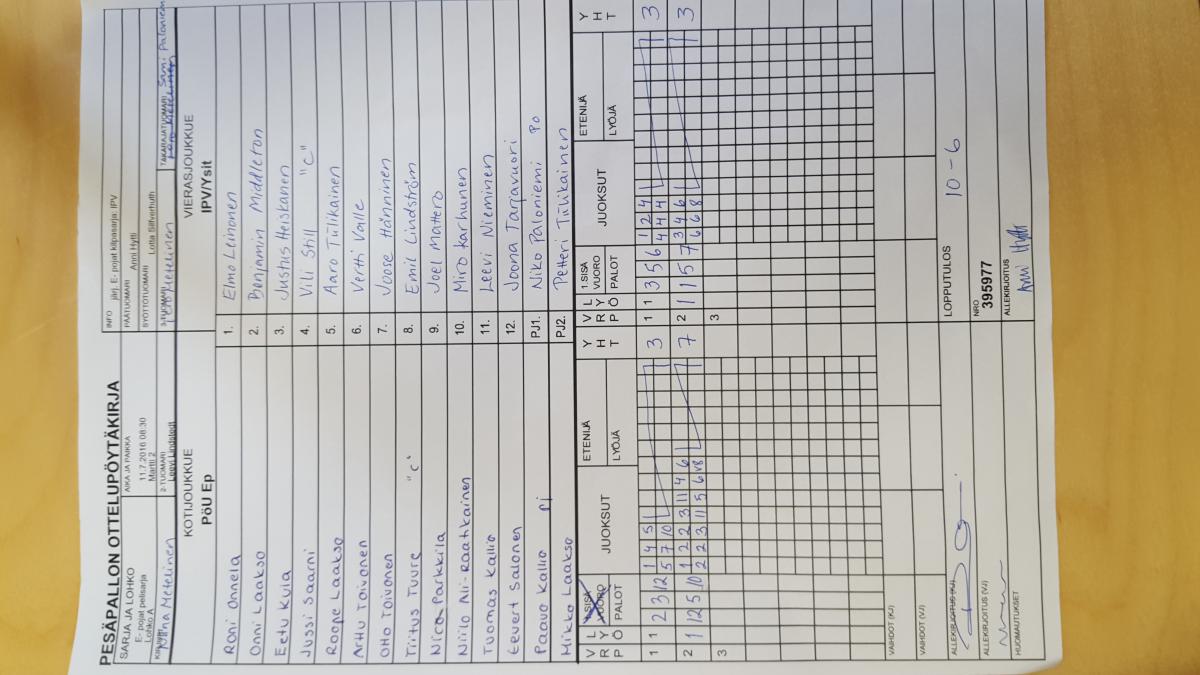 PESÄPALLON OTTELUPÖYTÄKIRJA
SARJA JA LOHKO
E- pojat pelisarja
Lohko A
AIKA JA PAIKKA
11.7.2016 08:30
Martti 2
INFO järj. E- pojat kilpasarja: IPV
PÄÄTUOMARI Anni Hytti
SYÖTTÖTUOMARI Lotta Silfverhuth
2-TUOMARI
Leevi Lindstedt
3-TUOMARI
Metelinen
TAKARAJATUOMARI Sami Paloniemi
KOTIJOUKKUE
PöU Ep
VIERASJOUKKUE
IPV/Ysit
Roni Onnela 1. Elmo Leinonen
Onni Laakso 2. Benjamin Middleton
Eetu Kuja 3. Justus Heiskanen
Jussi Saarni 4. Vili Still "C"
Roope Laakso 5. Aaro Tiilikainen
Arttu Toivonen 6. Vertti Valle
Otto Toivonen 7. Joore Hänninen
Tiitus Tuure "C" 8. Emil Lindström
Nico Parkkila 9. Joel Mattero
Niilo Nii-Raatikainen 10. Miro Karhunen
Tuomas Kallio 11. Leevi Nieminen
Eevert Salonen 12. Joona Tarjavuori
Paavo Kallio pj PJ1. Niko Paloniemi Po
Mikko Laakso PJ2. Petteri Tiilikainen
V R L Y P Ö
1.SISÄ VUORO
PALOT
JUOKSUT
ETENIJÄ
LYÖJÄ
Y H T
V R L Y P Ö
1.SISÄ VUORO
PALOT
JUOKSUT
ETENIJÄ
LYÖJÄ
Y H T
1 1 2 3 12 1 4 5 3 1 1 3 5 6 1 2 4 3
5 7 10 4 4 4
2 1 12 5 10 1 2 2 3 11 4 6 7 2 1 1 5 7 3 4 6 3
2 2 3 11 5 6 8 6 6 8
3 3
VAIHDOT (KJ)
VAIHDOT (VJ)
ALLEKIRJOITUS (KJ)
LOPPUTULOS
10-6
ALLEKIRJOITUS (VJ)
NRO
395977
HUOMAUTUKSET
ALLEKIRJOITUS
Anni Hytti